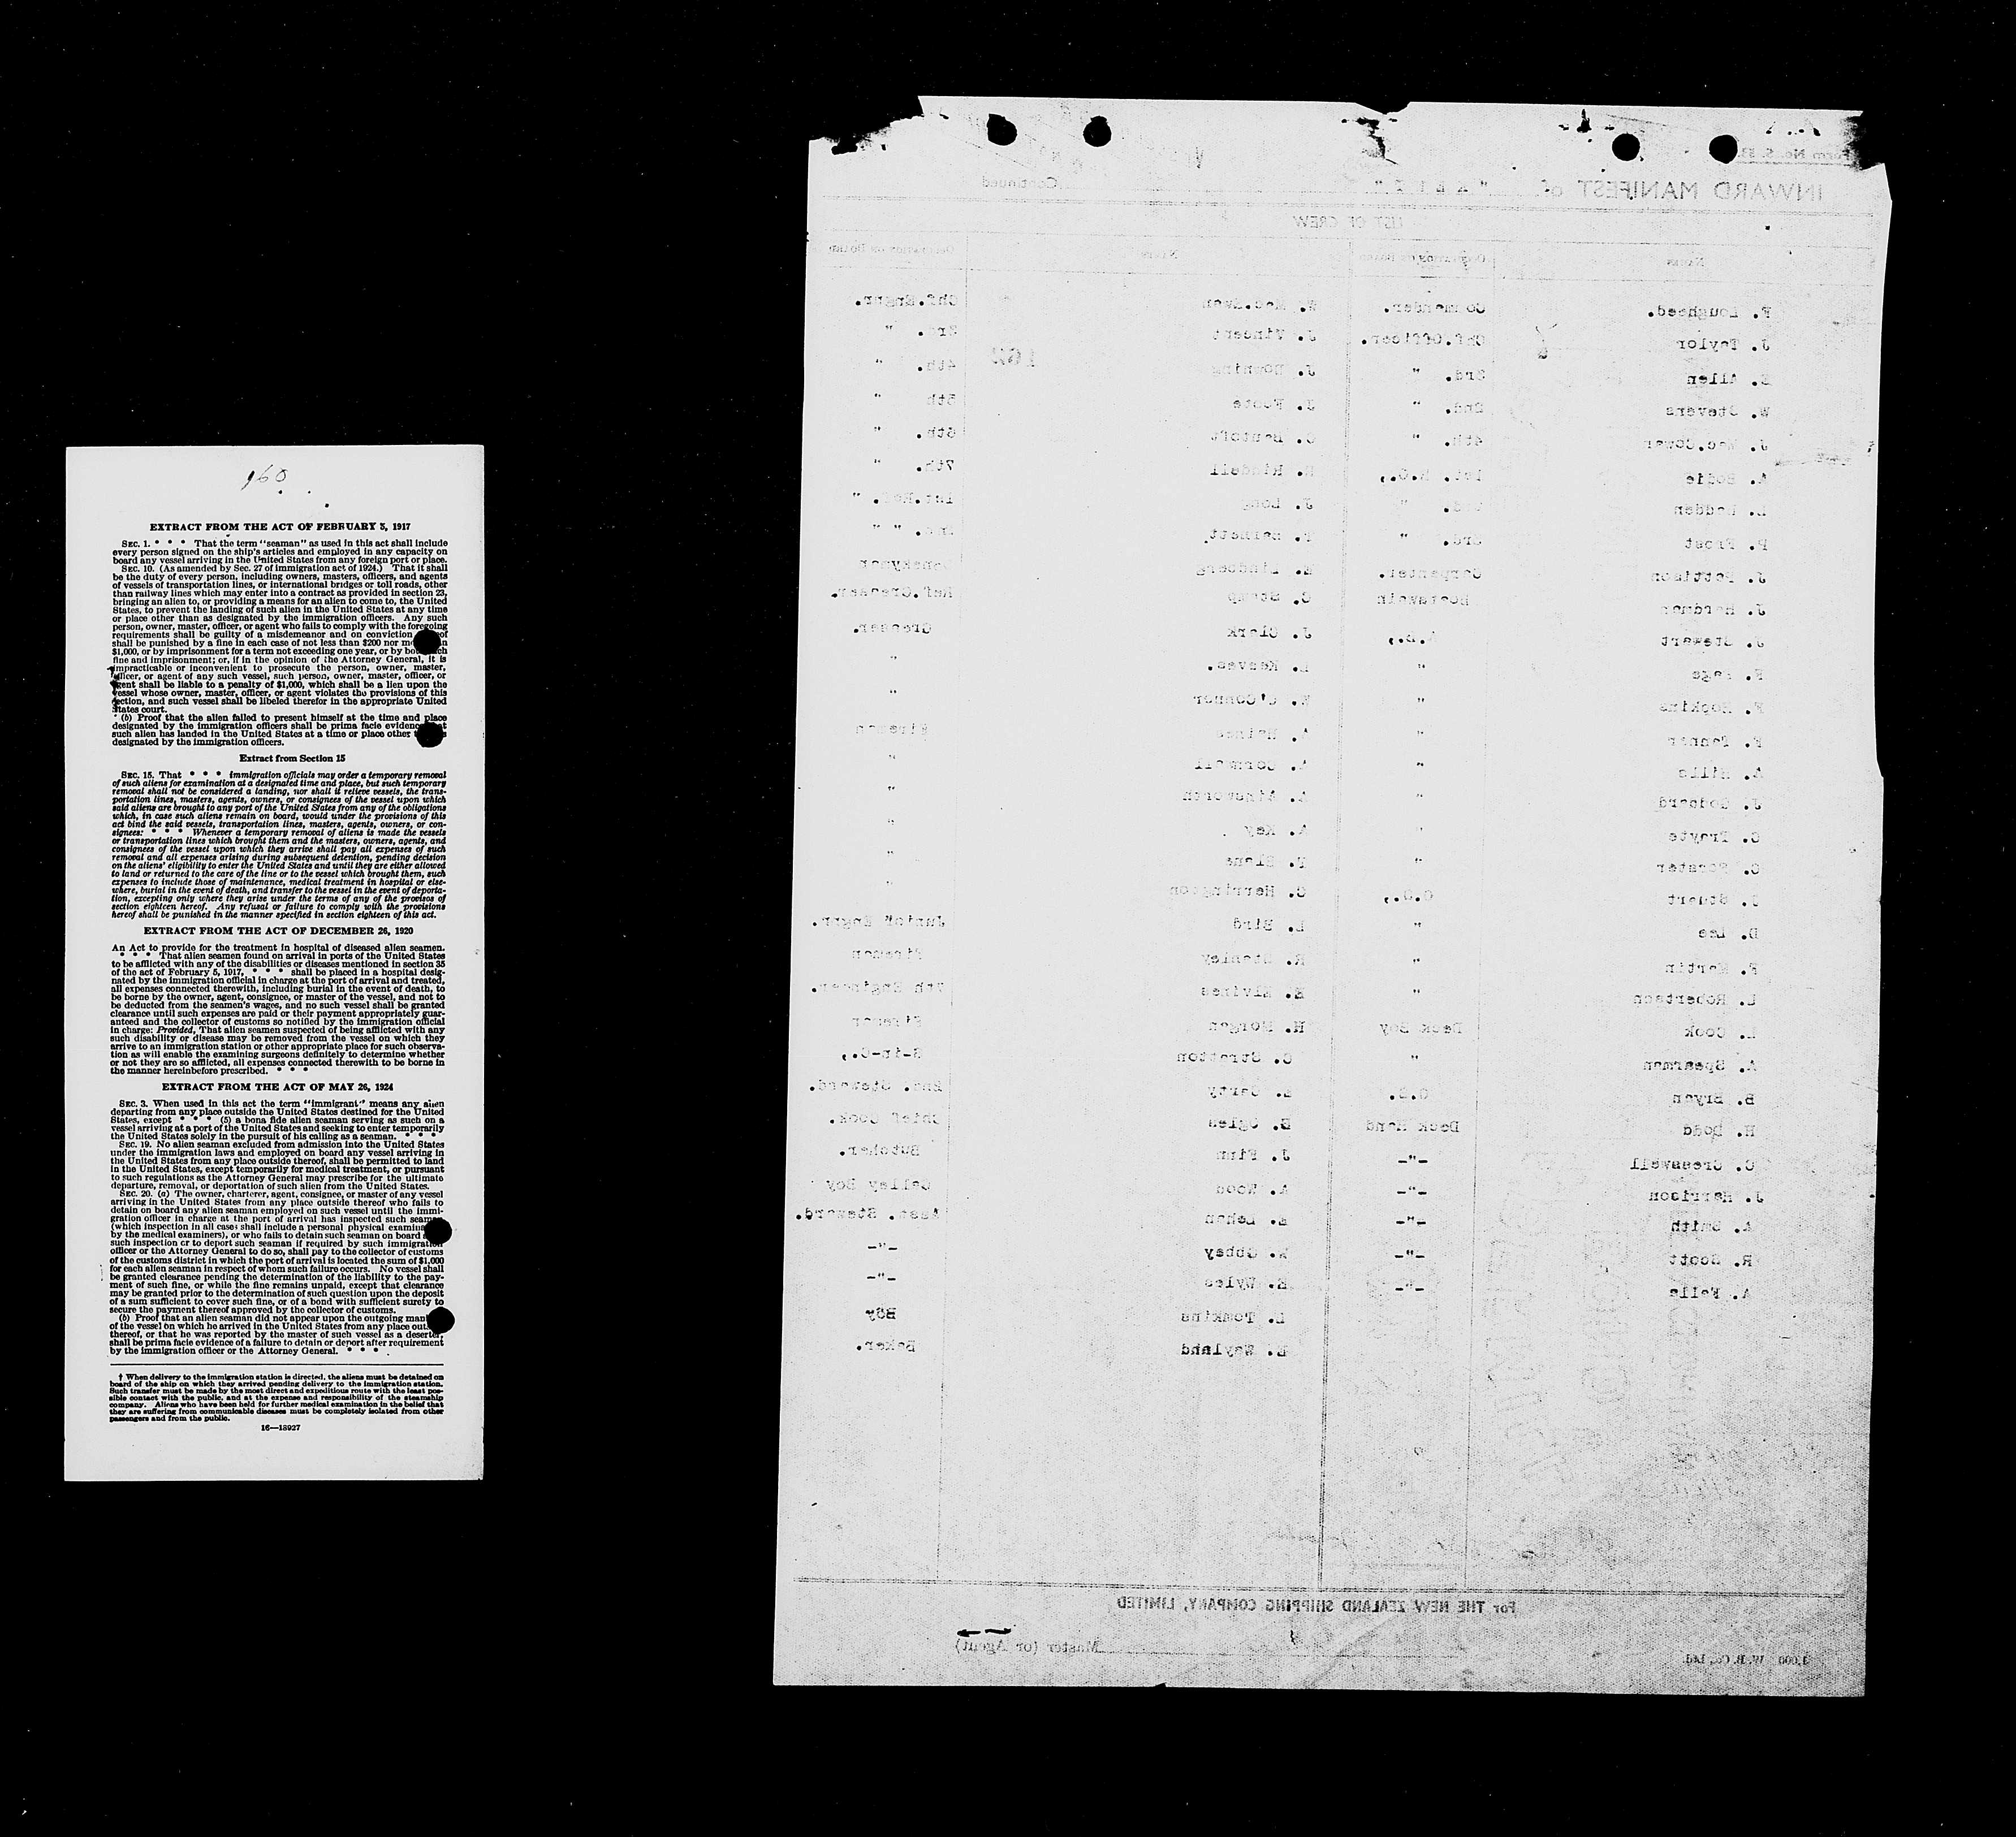 160
EXTRACT FROM THE ACT OF FEBRUARY 5, 1917
SEC. 1. * * * That the term "seaman" as used in this act shall include
every person signed on the ship's articles and employed in any capacity on
board any vessel arriving in the United States from any foreign port or place.
SEC. 10. (As amended by Sec. 27 of immigration act of 1924.) That it shall
be the duty of every person, including owners, masters, officers, and agents
of vessels of transportation lines, or international bridges or toll roads, other
than railway lines which may enter into a contract as provided in section 23,
bringing an alien to, or providing a means for an alien to come to, the United
States, to prevent the landing of such alien in the United States at any time
or place other than as designated by the immigration officers. Any such
person, owner, master, officer, or agent who fails to comply with the foregoing
requirements shall be guilty of a misdemeanor and on conviction of
shall be punished by a fine in each case of not less than $200 nor
$1,000, or by imprisonment for a term not exceeding one year, or by
fine and imprisonment; or, if in the opinion of the Attorney General, it is
impracticable or inconvenient to prosecute the person, owner, master,
officer, or agent of any such vessel, such person, owner, master, officer, or
agent shall be liable to a penalty of $1,000, which shall be a lien upon the
vessel whose owner, master, officer, or agent violates the provisions of this
section, and such vessel shall be libeled therefor in the appropriate United
States court.
(b) Proof that the alien failed to present himself at the time and place
designated by the immigration officers shall be prima facie evidence
such alien has landed in the United States at a time or place other
designated by the immigration officers.
Extract from Section 15
SEC. 15. That * * * immigration officials may order a temporary removal
of such aliens for examination at a designated time and place, but such temporary
removal shall not be considered a landing, nor shall it relieve vessels, the trans-
portation lines, masters, agents, owners, or consignees of the vessel upon which
said aliens are brought to any port of the United States from any of the obligations
which, in case such aliens remain on board, would under the provisions of this
act bind the said vessels, transportation lines, masters, agents, owners, or con-
signees: * * * Whenever a temporary removal of aliens is made the vessels
or transportation lines which brought them and the masters, owners, agents, and
consignees of the vessel upon which they arrive shall pay all expenses of such
removal and all expenses arising during subsequent detention, pending decision
on the aliens' eligibility to enter the United States and until they are either allowed
to land or returned to the care of the line or to the vessel which brought them, such
expenses to include those of maintenance, medical treatment in hospital or else-
where, burial in the event of death, and transfer to the vessel in the event of deporta-
tion, excepting only where they arise under the terms of any of the provisos of
section eighteen hereof. Any refusal or failure to comply with the provisions
hereof shall be punished in the manner specified in section eighteen of this act.
EXTRACT FROM THE ACT OF DECEMBER 26, 1920
An Act to provide for the treatment in hospital of diseased alien seamen.
* * * That alien seamen found on arrival in ports of the United States
to be afflicted with any of the disabilities or diseases mentioned in section 35
of the act of February 5, 1917, * * * shall be placed in a hospital desig-
nated by the immigration official in charge at the port of arrival and treated,
all expenses connected therewith, including burial in the event of death, to
be borne by the owner, agent, consignee, or master of the vessel, and not to
be deducted from the seamen's wages, and no such vessel shall be granted
clearance until such expenses are paid or their payment appropriately guar-
anteed and the collector of customs so notified by the immigration official
in charge: Provided, That alien seamen suspected of being afflicted with any
such disability or disease may be removed from the vessel on which they
arrive to an immigration station or other appropriate place for such observa-
tion as will enable the examining surgeons definitely to determine whether
or not they are so afflicted, all expenses connected therewith to be borne in
the manner hereinbefore prescribed. * * *
EXTRACT FROM THE ACT OF MAY 26, 1924
SEC. 3. When used in this act the term "immigrant" means any alien
departing from any place outside the United States destined for the United
States, except * * * (5) a bona fide alien seaman serving as such on a
vessel arriving at a port of the United States and seeking to enter temporarily
the United States solely in the pursuit of his calling as a seaman. * * *
SEC. 19. No alien seaman excluded from admission into the United States
under the immigration laws and employed on board any vessel arriving in
the United States from any place outside thereof, shall be permitted to land
in the United States, except temporarily for medical treatment, or pursuant
to such regulations as the Attorney General may prescribe for the ultimate
departure, removal, or deportation of such alien from the United States.
SEC. 20. (a) The owner, charterer, agent, consignee, or master of any vessel
arriving in the United States from any place outside thereof who fails to
detain on board any alien seaman employed on such vessel until the immi-
gration officer in charge at the port of arrival has inspected such
(which inspection in all cases shall include a personal physical
by the medical examiners), or who fails to detain such seaman on board
such inspection or to deport such seaman if required by such immigration
officer or the Attorney General to do so, shall pay to the collector of customs
of the customs district in which the port of arrival is located the sum of $1,000
for each alien seaman in respect of whom such failure occurs. No vessel shall
be granted clearance pending the determination of the liability to the pay-
ment of such fine, or while the fine remains unpaid, except that clearance
may be granted prior to the determination of such question upon the deposit
of a sum sufficient to cover such fine, or of a bond with sufficient surety to
secure the payment thereof approved by the collector of customs.
(b) Proof that an alien seaman did not appear upon the outgoing
of the vessel on which he arrived in the United States from any place
thereof, or that he was reported by the master of such vessel as a deserter,
shall be prima facie evidence of a failure to detain or deport after requirement
by the immigration officer or the Attorney General. * * *
† When delivery to the immigration station is directed, the aliens must be detained on
board of the ship on which they arrived pending delivery to the immigration station.
Such transfer must be made by the most direct and expeditious route with the least pos-
sible contact with the public, and at the expense and responsibility of the steamship
company. Aliens who have been held for further medical examination in the belief that
they are suffering from communicable diseases must be completely isolated from other
passengers and from the public.
16—18927
Form No. S.
INWARD MANIFEST of Continued
LIST OF CREW
NAMES OCCUPATION ON BOARD NAMES OCCUPATION ON BOARD
F. Lougheed. Commander. W. Chf.Engnr.
J. Taylor Chf.Officer. J. Vincent 3rd. "
E. Allen 3rd. " J. Downing 4th. "
W. Stevens 2nd. " J. Foote 5th "
J. 4th. " C. Bentoft 6th. "
A. Bodie 1st. R. Riddell 7th. "
L. Hadden " J. Long 1st.Ref. "
P. Frost 3rd. " Barnett " "
J. Pattison Carpenter. Lindberg Donkeyman
J. Herdman Boatswain C. Stump Ref.Greaser.
J. Stewart J. Clark Greaser.
F. Page " L. Reeves. "
F. Hopkins " O'Connor "
F. Tanner " A. Haines Fireman
A. Hills " Cornwall "
J. Goddard " A. Ainsworth "
C. " A. Key "
C. Forster " Blane "
J. Stuart O.S., C. Herrington "
D. Lee " L. Bird Junior Engnr.
F. Martin " R. Stanley Fireman
L. Robertson " E. 7th Engineer.
L. Cook Deck Boy H. Morgan Fireman
A. Spearman " C. Stratton
B. Bryan O.S. Carty Steward.
H. Dodd Deck Hand E. Ogles Chief Cook.
C. Cresswell -"- J. Finn Butcher.
J. Harrison -"- A. Wood Galley Boy
A. Smith -"- Lehan Asst. Steward.
R. Scott -"- Obbey -"-
A. Fells -"- E. Wyles -"-
L. Tomkins Boy
Baker.
For THE NEW ZEALAND SHIPPING COMPANY, LIMITED
Master (or Agent)
W. B. Co., Ltd.